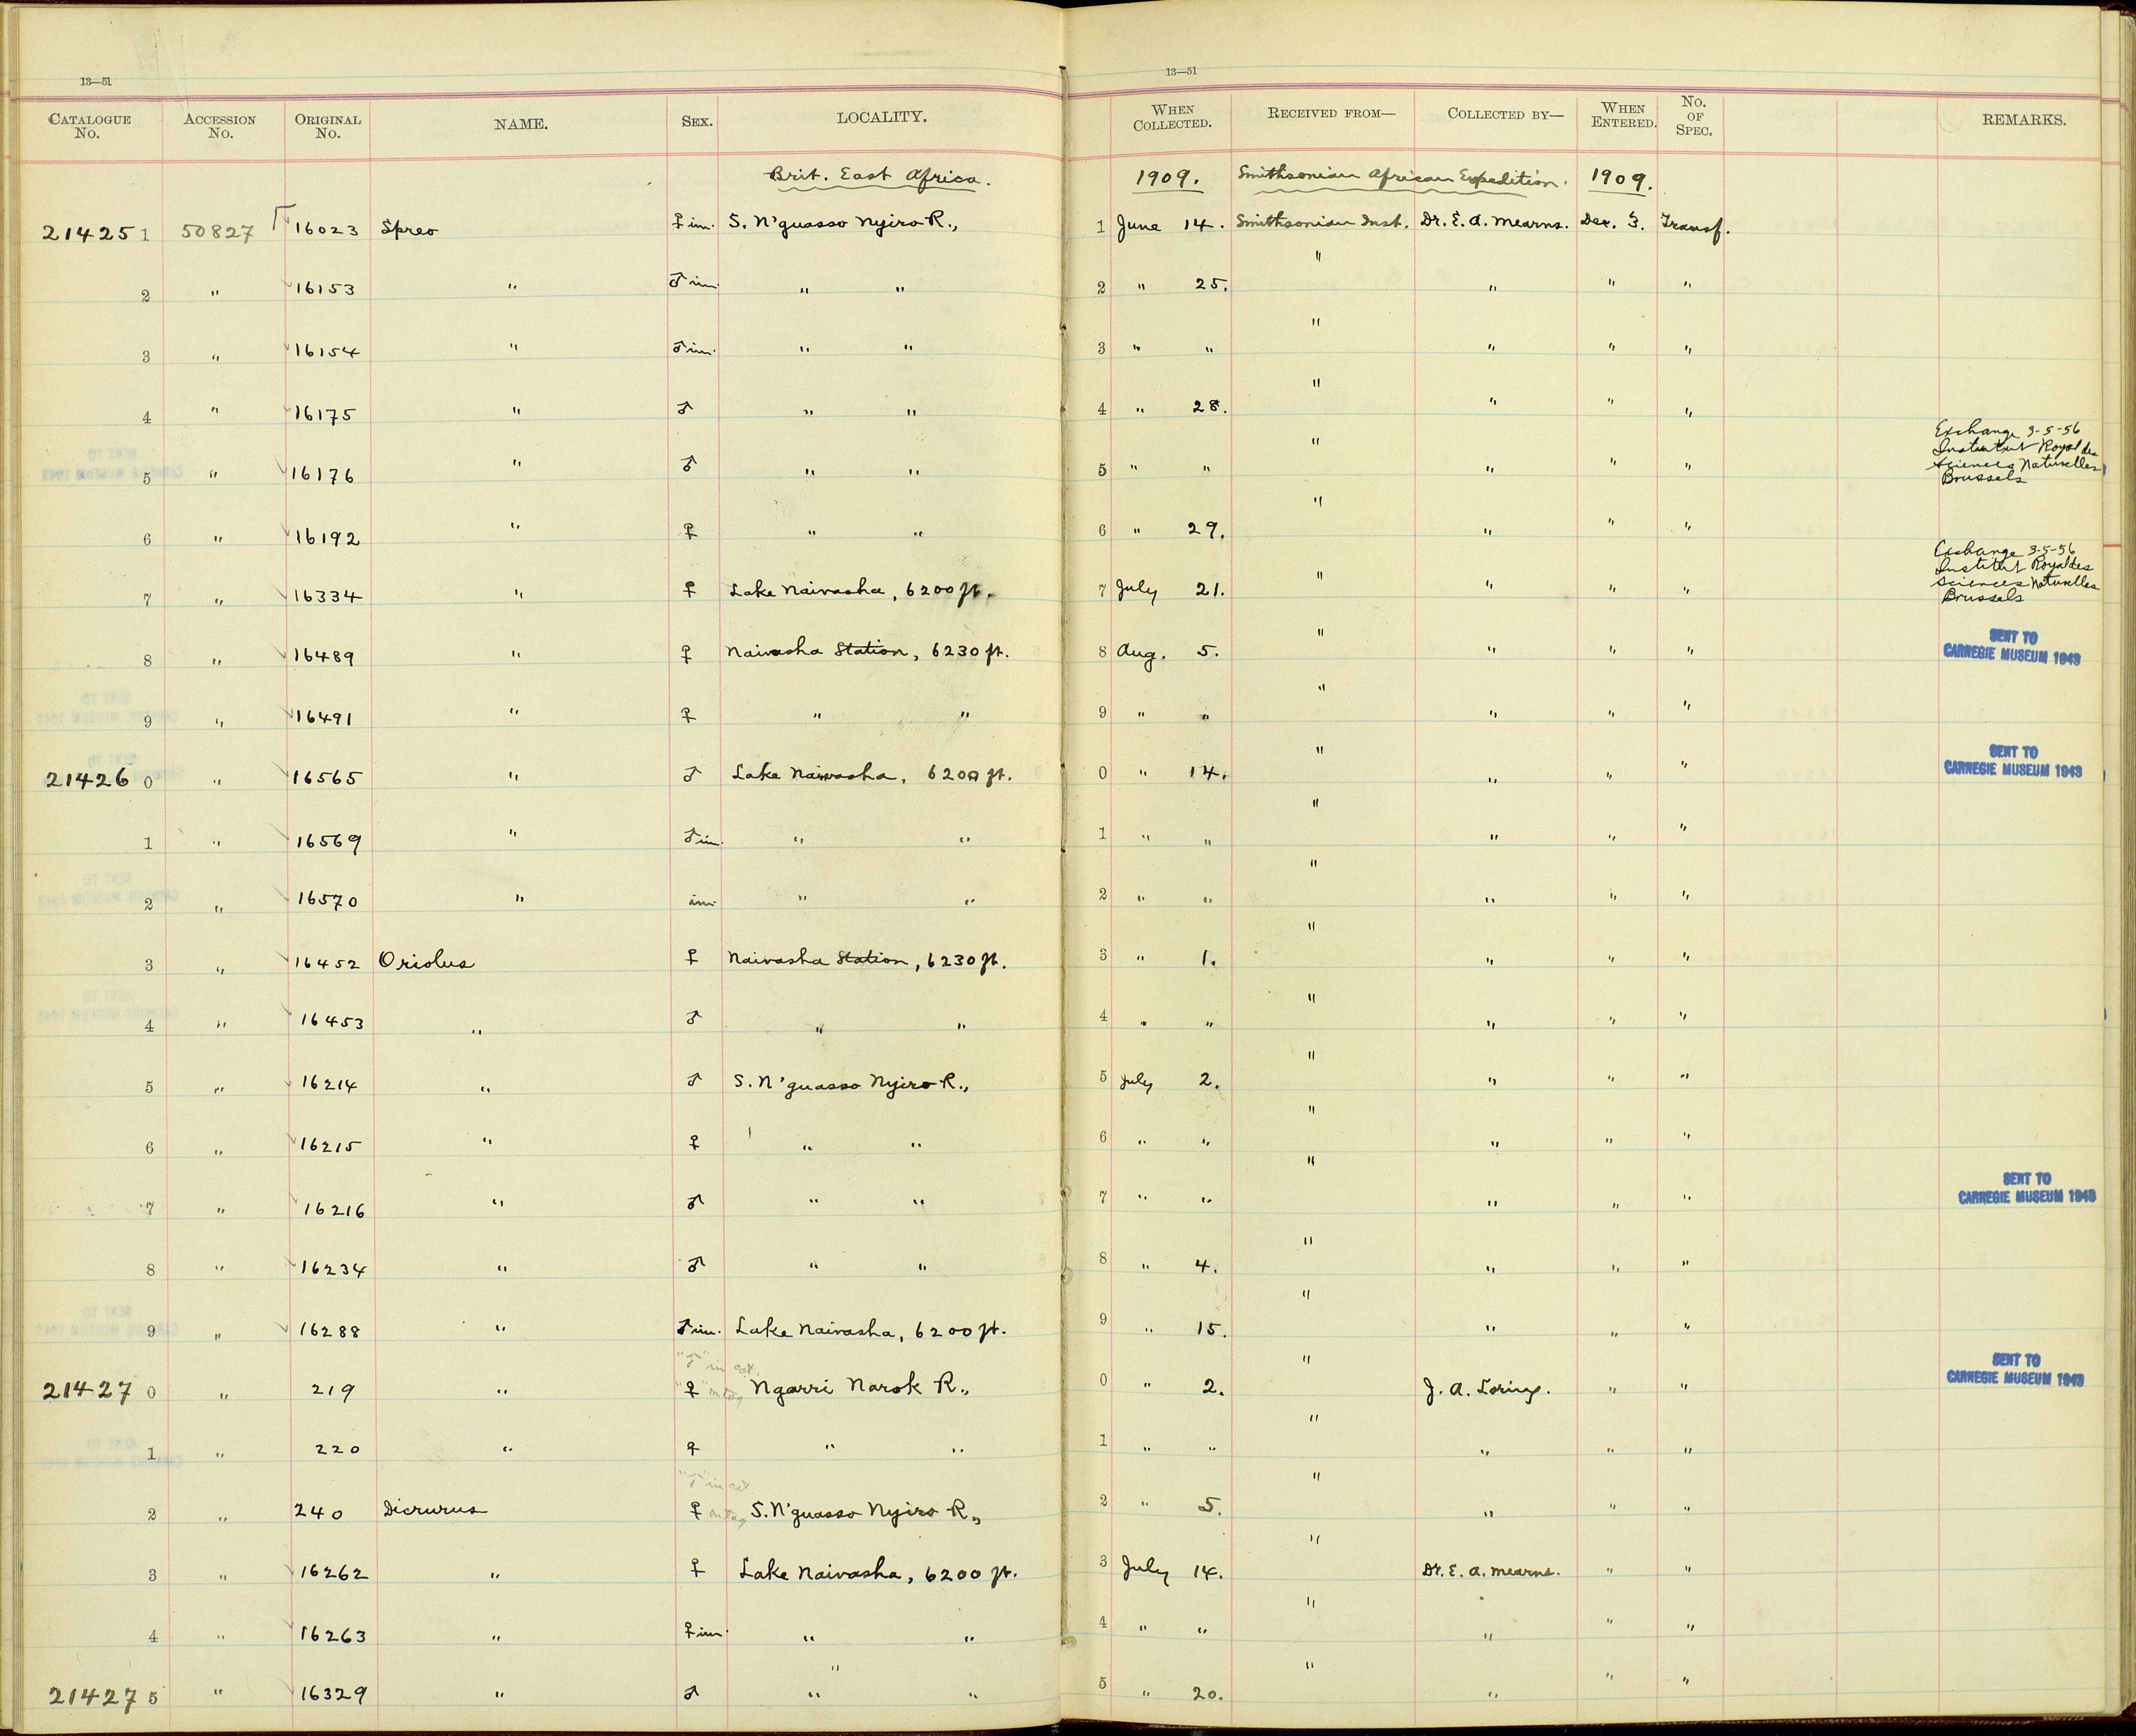 13—51
13—51
CATALOGUE No. ACCESSION No. ORIGINAL No. NAME. SEX. LOCALITY. WHEN COLLECTED. RECEIVED FROM— COLLECTED BY— WHEN ENTERED. No. OF SPEC. REMARKS.
Brit. East Africa. 1909. Smithsonian African Expedition. 1909.
214251 50827 16023 Spreo ♀ im. S. N'guasso Nyiro R., 1 June 14. Smithsonian Inst. Dr. E. A. Mearns. Dec. 3. Transf.
2 " 16153 " ♂ im. " " 2 " 25. " " " "
3 " 16154 " ♂ im. " " 3 " " " " " "
4 " 16175 " ♂ " " 4 " 28. " " " "
5 " 16176 " ♂ " " 5 " " " " " " Exchange 3-5-56
Institut Royal des
Sciences Naturelles
Brussels
6 " 16192 " ♀ " " 6 " 29. " " " "
7 " 16334 " ♀ Lake Naivasha, 6200 ft. 7 July 21. " " " " Exchange 3-5-56
Institut Royal des
Sciences Naturelles
Brussels
8 " 16489 " ♀ Naivasha Station, 6230 ft. 8 Aug. 5. " " " " SENT TO
CARNEGIE MUSEUM 1943
9 " 16491 " ♀ " " 9 " " " " " "
214260 " 16565 " ♂ Lake Naivasha, 6200 ft. 0 " 14. " " " " SENT TO
CARNEGIE MUSEUM 1943
1 " 16569 " ♂ im. " " 1 " " " " " "
2 " 16570 " im. " " 2 " " " " " "
3 " 16452 Oriolus ♀ Naivasha Station, 6230 ft. 3 " 1. " " " "
4 " 16453 " ♂ " " 4 " " " " " "
5 " 16214 " ♂ S. N'guasso Nyiro R., 5 July 2. " " " "
6 " 16215 " ♀ " " 6 " " " " " "
7 " 16216 " ♂ " " 7 " " " " " " SENT TO
CARNEGIE MUSEUM 1943
8 " 16234 " ♂ " " 8 " 4. " " " "
9 " 16288 " ♂ im. Lake Naivasha, 6200 ft. 9 " 15. " " " "
"♂" in cat.
214270 " 219 " "♀" on tag Ngarri Narok R., 0 " 2. " J. A. Loring. " " SENT TO
CARNEGIE MUSEUM 1943
1 " 220 " ♀ " " 1 " " " " " "
"♂" in cat
2 " 240 Dicrurus ♀ on tag S. N'guasso Nyiro R., 2 " 5. " " " "
3 " 16262 " ♀ Lake Naivasha, 6200 ft. 3 July 14. " Dr. E. A. Mearns. " "
4 " 16263 " ♀ im. " " 4 " " " " " "
214275 " 16329 " ♂ " " " 5 " 20. " " " "